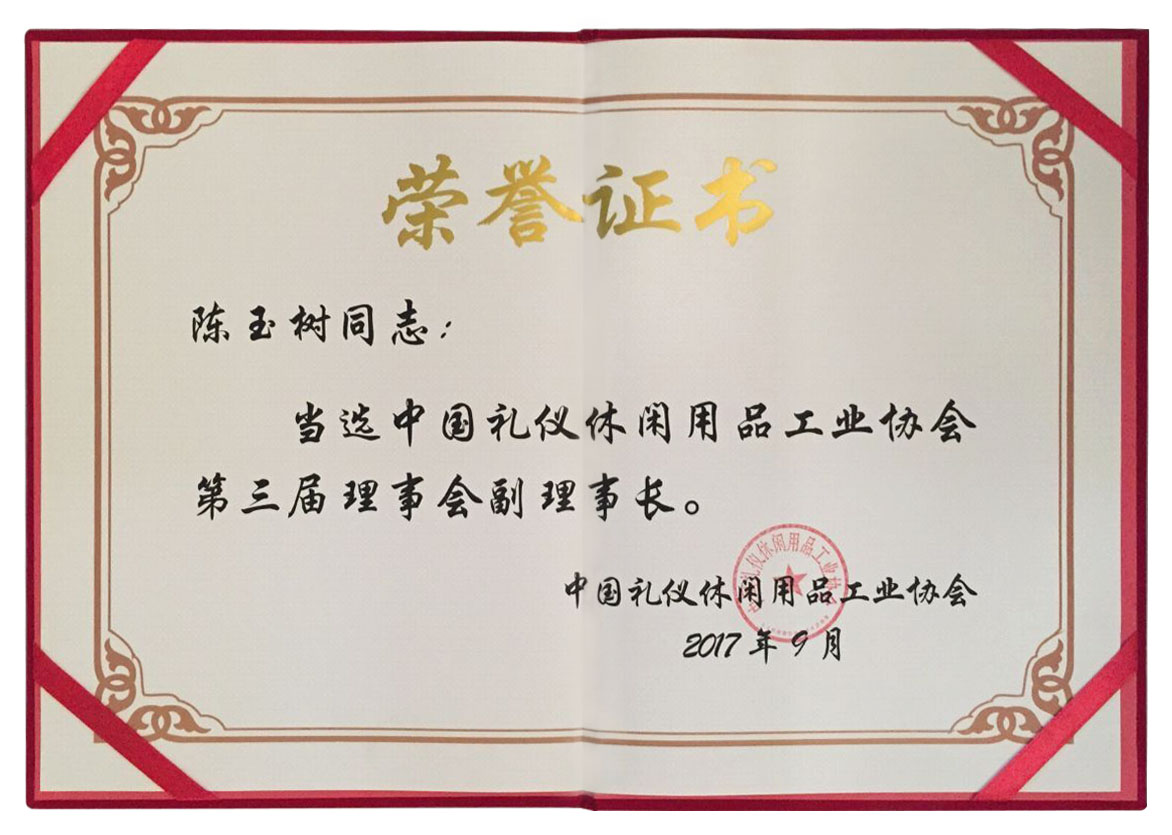 荣誉证书
陈玉树同志：
当选中国礼仪休闲用品工业协会
第三届理事会副理事长。
中国礼仪休闲用品工业协会
中国礼仪休闲用品工业协会
2017年9月